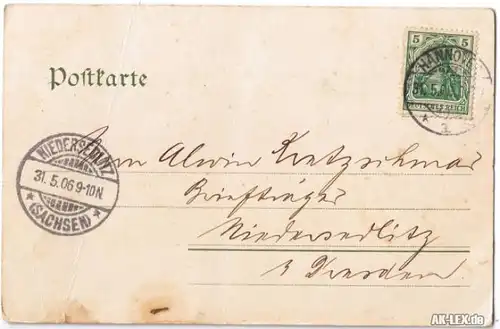 5 5
HANNOVER
31.5.06
DEUTSCHES REICH
* 1
Postkarte
NIEDERSEDLITZ
31.5.06 9-10N
* (SACHSEN) *
Herrn Alwin Kretzschmar
Briefträger
Niedersedlitz
b Dresden
AK-LEX.de